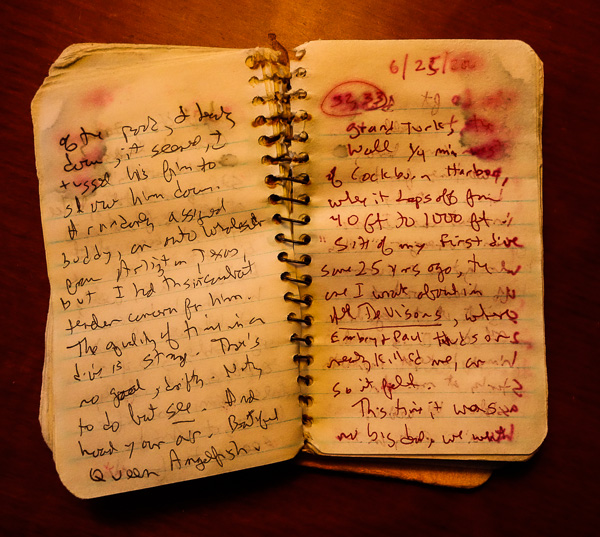 of the
down, it seemed, I
tugged his fin to
slow him down.
A randomly assigned
buddy, an auto wholesaler
from Arlington Texas,
but I had this
tender concern for him.
The quality of time in a
dive is strange. There's
no goal, drifty. Nothing
to do but see. And
hoard your air. Beautiful
Queen Angelfish.
6/25/
Grand Turk's
Wall 1/4 mi
of Cockburn Harbor,
where it drops off from
40 ft to 1000 ft
site of my first dive
some 25 yrs ago, the
one I wrote about in
Divisons, where
Embry & Paul
nearly killed me, and
so it
This time it was
no big deal, we went